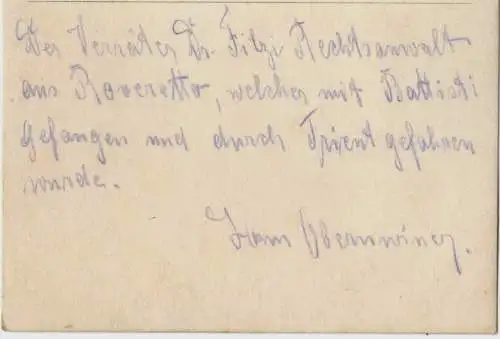 Der Verräter Dr. Filzi Rechtsanwalt
aus Roveretto, welcher mit Battisti
gefangen und durch Trient gefahren
wurde.